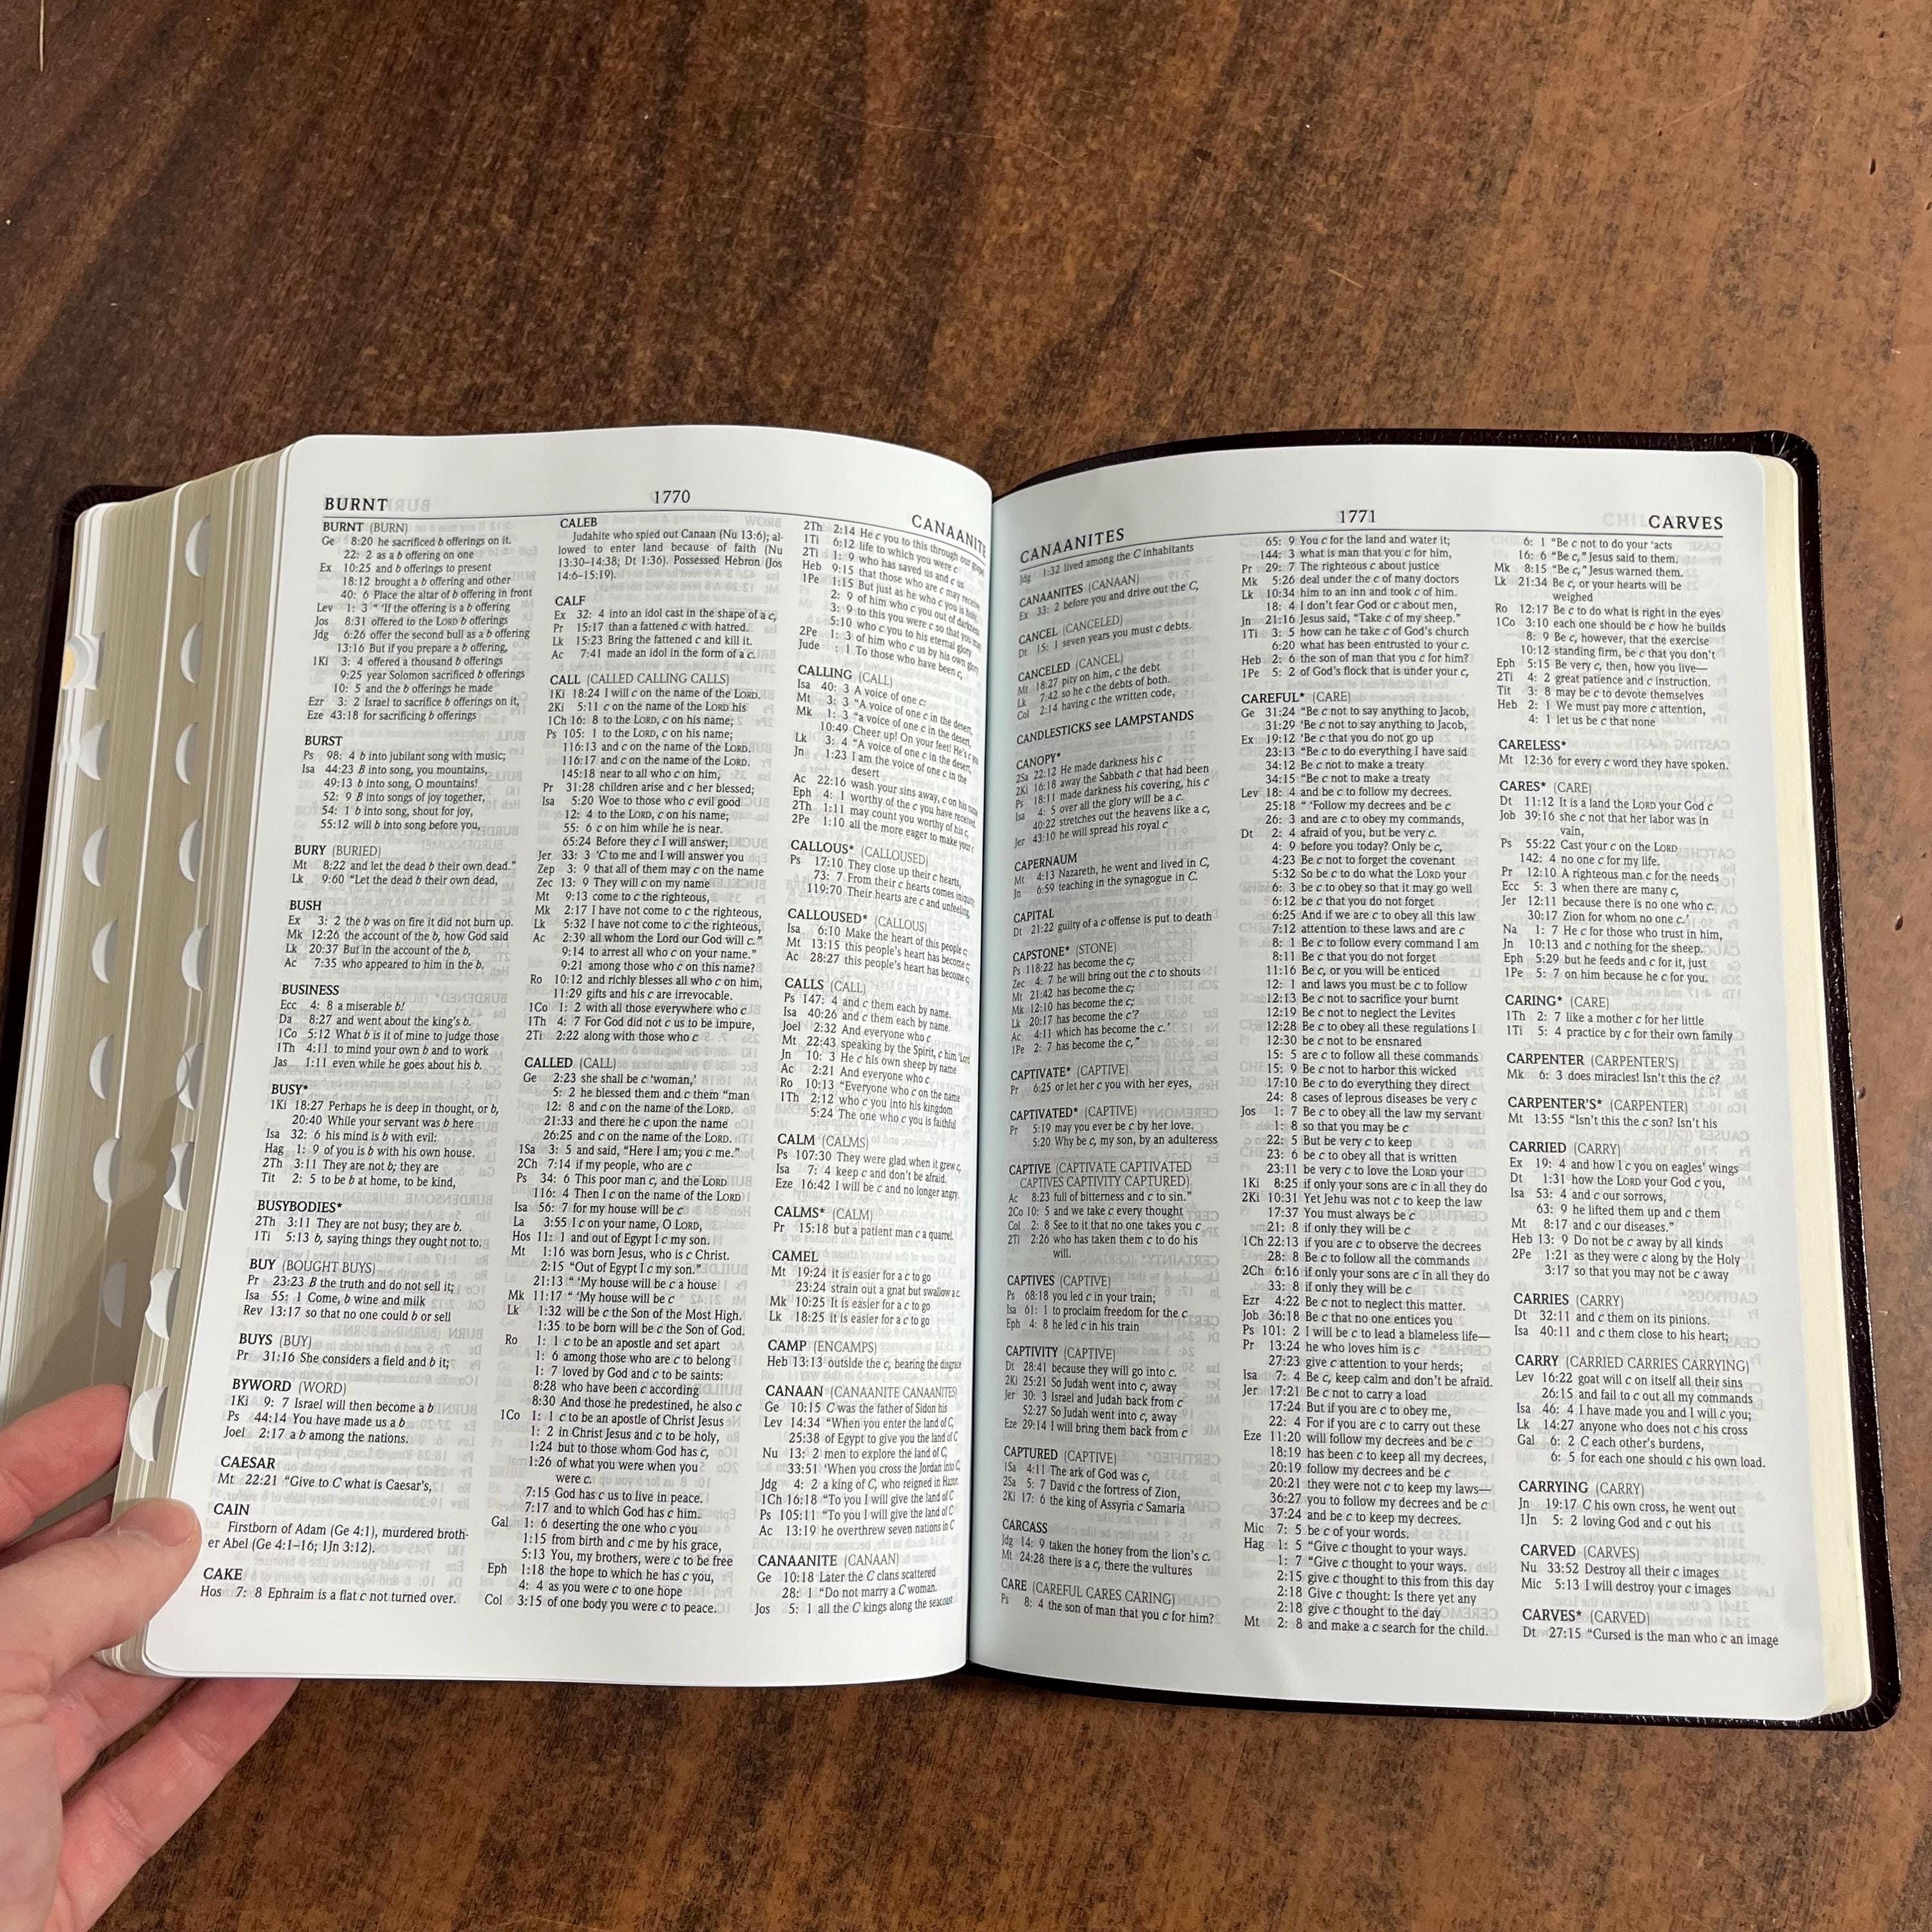 BURNT
1770
CANAANITE
BURNT (BURN)
Ge 8:20 he sacrificed b offerings on it.
22: 2 as a b offering on one
Ex 10:25 and b offerings to present
18:12 brought a b offering and other
40: 6 Place the altar of b offering in front
Lev 1: 3 “ ‘If the offering is a b offering
Jos 8:31 offered to the LORD b offerings
Jdg 6:26 offer the second bull as a b offering
13:16 But if you prepare a b offering,
1Ki 3: 4 offered a thousand b offerings
9:25 year Solomon sacrificed b offerings
10: 5 and the b offerings he made
Ezr 3: 2 Israel to sacrifice b offerings on it,
Eze 43:18 for sacrificing b offerings
BURST
Ps 98: 4 b into jubilant song with music;
Isa 44:23 B into song, you mountains,
49:13 b into song, O mountains!
52: 9 B into songs of joy together,
54: 1 b into song, shout for joy,
55:12 will b into song before you,
BURY (BURIED)
Mt 8:22 and let the dead b their own dead.”
Lk 9:60 “Let the dead b their own dead,
BUSH
Ex 3: 2 the b was on fire it did not burn up.
Mk 12:26 the account of the b, how God said
Lk 20:37 But in the account of the b,
Ac 7:35 who appeared to him in the b.
BUSINESS
Ecc 4: 8 a miserable b!
Da 8:27 and went about the king’s b.
1Co 5:12 What b is it of mine to judge those
1Th 4:11 to mind your own b and to work
Jas 1:11 even while he goes about his b.
BUSY*
1Ki 18:27 Perhaps he is deep in thought, or b,
20:40 While your servant was b here
Isa 32: 6 his mind is b with evil:
Hag 1: 9 of you is b with his own house.
2Th 3:11 They are not b; they are
Tit 2: 5 to be b at home, to be kind,
BUSYBODIES*
2Th 3:11 They are not busy; they are b.
1Ti 5:13 b, saying things they ought not to.
BUY (BOUGHT BUYS)
Pr 23:23 B the truth and do not sell it;
Isa 55: 1 Come, b wine and milk
Rev 13:17 so that no one could b or sell
BUYS (BUY)
Pr 31:16 She considers a field and b it;
BYWORD (WORD)
1Ki 9: 7 Israel will then become a b
Ps 44:14 You have made us a b
Joel 2:17 a b among the nations.
CAESAR
Mt 22:21 “Give to C what is Caesar’s,
CAIN
Firstborn of Adam (Ge 4:1), murdered broth-
er Abel (Ge 4:1–16; 1Jn 3:12).
CAKE
Hos 7: 8 Ephraim is a flat c not turned over.
CALEB
Judahite who spied out Canaan (Nu 13:6); al-
lowed to enter land because of faith (Nu
13:30–14:38; Dt 1:36). Possessed Hebron (Jos
14:6–15:19).
CALF
Ex 32: 4 into an idol cast in the shape of a c,
Pr 15:17 than a fattened c with hatred.
Lk 15:23 Bring the fattened c and kill it.
Ac 7:41 made an idol in the form of a c.
CALL (CALLED CALLING CALLS)
1Ki 18:24 I will c on the name of the LORD.
2Ki 5:11 c on the name of the LORD his
1Ch 16: 8 to the LORD, c on his name;
Ps 105: 1 to the LORD, c on his name;
116:13 and c on the name of the LORD.
116:17 and c on the name of the LORD.
145:18 near to all who c on him,
Pr 31:28 children arise and c her blessed;
Isa 5:20 Woe to those who c evil good
12: 4 to the LORD, c on his name;
55: 6 c on him while he is near.
65:24 Before they c I will answer;
Jer 33: 3 ‘C to me and I will answer you
Zep 3: 9 that all of them may c on the name
Zec 13: 9 They will c on my name
Mt 9:13 come to c the righteous,
Mk 2:17 I have not come to c the righteous,
Lk 5:32 I have not come to c the righteous,
Ac 2:39 all whom the Lord our God will c.”
9:14 to arrest all who c on your name.”
9:21 among those who c on this name?
Ro 10:12 and richly blesses all who c on him,
11:29 gifts and his c are irrevocable.
1Co 1: 2 with all those everywhere who c
1Th 4: 7 For God did not c us to be impure,
2Ti 2:22 along with those who c
CALLED (CALL)
Ge 2:23 she shall be c ‘woman,’
5: 2 he blessed them and c them “man
12: 8 and c on the name of the LORD.
21:33 and there he c upon the name
26:25 and c on the name of the LORD.
1Sa 3: 5 and said, “Here I am; you c me.”
2Ch 7:14 if my people, who are c
Ps 34: 6 This poor man c, and the LORD
116: 4 Then I c on the name of the LORD
Isa 56: 7 for my house will be c
La 3:55 I c on your name, O LORD,
Hos 11: 1 and out of Egypt I c my son.
Mt 1:16 was born Jesus, who is c Christ.
2:15 “Out of Egypt I c my son.”
21:13 “ ‘My house will be c a house
Mk 11:17 “ ‘My house will be c
Lk 1:32 will be c the Son of the Most High.
1:35 to be born will be c the Son of God.
Ro 1: 1 c to be an apostle and set apart
1: 6 among those who are c to belong
1: 7 loved by God and c to be saints:
8:28 who have been c according
8:30 And those he predestined, he also c
1Co 1: 1 c to be an apostle of Christ Jesus
1: 2 in Christ Jesus and c to be holy,
1:24 but to those whom God has c,
1:26 of what you were when you
were c.
7:15 God has c us to live in peace.
7:17 and to which God has c him.
Gal 1: 6 deserting the one who c you
1:15 from birth and c me by his grace,
5:13 You, my brothers, were c to be free
Eph 1:18 the hope to which he has c you,
4: 4 as you were c to one hope
Col 3:15 of one body you were c to peace.
2Th 2:14 He c you to this through our gospel
1Ti 6:12 life to which you were c
2Ti 1: 9 who has saved us and c us
Heb 9:15 that those who are c may receive
1Pe 1:15 But just as he who c you is holy,
2: 9 of him who c you out of darkness
3: 9 to this you were c so that you may
5:10 who c you to his eternal glory
2Pe 1: 3 of him who c us by his own glory
Jude : 1 To those who have been c,
CALLING (CALL)
Isa 40: 3 A voice of one c:
Mt 3: 3 “A voice of one c in the desert,
Mk 1: 3 “a voice of one c in the desert,
10:49 Cheer up! On your feet! He’s c you
Lk 3: 4 “A voice of one c in the desert,
Jn 1:23 I am the voice of one c in the
desert
Ac 22:16 wash your sins away, c on his name
Eph 4: 1 worthy of the c you have received.
2Th 1:11 may count you worthy of his c,
2Pe 1:10 all the more eager to make your c
CALLOUS* (CALLOUSED)
Ps 17:10 They close up their c hearts,
73: 7 From their c hearts comes iniquity
119:70 Their hearts are c and unfeeling,
CALLOUSED* (CALLOUS)
Isa 6:10 Make the heart of this people c;
Mt 13:15 this people’s heart has become c;
Ac 28:27 this people’s heart has become c;
CALLS (CALL)
Ps 147: 4 and c them each by name.
Isa 40:26 and c them each by name.
Joel 2:32 And everyone who c
Mt 22:43 speaking by the Spirit, c him ‘Lord
Jn 10: 3 He c his own sheep by name
Ac 2:21 And everyone who c
Ro 10:13 “Everyone who c on the name
1Th 2:12 who c you into his kingdom
5:24 The one who c you is faithful
CALM (CALMS)
Ps 107:30 They were glad when it grew c,
Isa 7: 4 keep c and don’t be afraid.
Eze 16:42 I will be c and no longer angry.
CALMS* (CALM)
Pr 15:18 but a patient man c a quarrel.
CAMEL
Mt 19:24 it is easier for a c to go
23:24 strain out a gnat but swallow a c.
Mk 10:25 It is easier for a c to go
Lk 18:25 it is easier for a c to go
CAMP (ENCAMPS)
Heb 13:13 outside the c, bearing the disgrace
CANAAN (CANAANITE CANAANITES)
Ge 10:15 C was the father of Sidon his
Lev 14:34 “When you enter the land of C,
25:38 of Egypt to give you the land of C
Nu 13: 2 men to explore the land of C,
33:51 ‘When you cross the Jordan into C,
Jdg 4: 2 a king of C, who reigned in Hazor.
1Ch 16:18 “To you I will give the land of C
Ps 105:11 “To you I will give the land of C
Ac 13:19 he overthrew seven nations in C
CANAANITE (CANAAN)
Ge 10:18 Later the C clans scattered
28: 1 “Do not marry a C woman.
Jos 5: 1 all the C kings along the seacoast
CANAANITES
1771
CARVES
Jdg 1:32 lived among the C inhabitants
CANAANITES (CANAAN)
Ex 33: 2 before you and drive out the C,
CANCEL (CANCELED)
Dt 15: 1 seven years you must c debts.
CANCELED (CANCEL)
Mt 18:27 pity on him, c the debt
Lk 7:42 so he c the debts of both.
Col 2:14 having c the written code,
CANDLESTICKS see LAMPSTANDS
CANOPY*
2Sa 22:12 He made darkness his c
2Ki 16:18 away the Sabbath c that had been
Ps 18:11 made darkness his covering, his c
Isa 4: 5 over all the glory will be a c.
40:22 stretches out the heavens like a c,
Jer 43:10 he will spread his royal c
CAPERNAUM
Mt 4:13 Nazareth, he went and lived in C,
Jn 6:59 teaching in the synagogue in C.
CAPITAL
Dt 21:22 guilty of a c offense is put to death
CAPSTONE* (STONE)
Ps 118:22 has become the c;
Zec 4: 7 he will bring out the c to shouts
Mt 21:42 has become the c;
Mk 12:10 has become the c;
Lk 20:17 has become the c’?
Ac 4:11 which has become the c.’
1Pe 2: 7 has become the c,”
CAPTIVATE* (CAPTIVE)
Pr 6:25 or let her c you with her eyes,
CAPTIVATED* (CAPTIVE)
Pr 5:19 may you ever be c by her love.
5:20 Why be c, my son, by an adulteress
CAPTIVE (CAPTIVATE CAPTIVATED
CAPTIVES CAPTIVITY CAPTURED)
Ac 8:23 full of bitterness and c to sin.”
2Co 10: 5 and we take c every thought
Col 2: 8 See to it that no one takes you c
2Ti 2:26 who has taken them c to do his
will.
CAPTIVES (CAPTIVE)
Ps 68:18 you led c in your train;
Isa 61: 1 to proclaim freedom for the c
Eph 4: 8 he led c in his train
CAPTIVITY (CAPTIVE)
Dt 28:41 because they will go into c.
2Ki 25:21 So Judah went into c, away
Jer 30: 3 Israel and Judah back from c
52:27 So Judah went into c, away
Eze 29:14 I will bring them back from c
CAPTURED (CAPTIVE)
1Sa 4:11 The ark of God was c,
2Sa 5: 7 David c the fortress of Zion,
2Ki 17: 6 the king of Assyria c Samaria
CARCASS
Jdg 14: 9 taken the honey from the lion’s c.
Mt 24:28 there is a c, there the vultures
CARE (CAREFUL CARES CARING)
Ps 8: 4 the son of man that you c for him?
65: 9 You c for the land and water it;
144: 3 what is man that you c for him,
Pr 29: 7 The righteous c about justice
Mk 5:26 deal under the c of many doctors
Lk 10:34 him to an inn and took c of him.
18: 4 I don’t fear God or c about men,
Jn 21:16 Jesus said, “Take c of my sheep.”
1Ti 3: 5 how can he take c of God’s church
6:20 what has been entrusted to your c.
Heb 2: 6 the son of man that you c for him?
1Pe 5: 2 of God’s flock that is under your c,
CAREFUL* (CARE)
Ge 31:24 “Be c not to say anything to Jacob,
31:29 ‘Be c not to say anything to Jacob,
Ex 19:12 ‘Be c that you do not go up
23:13 “Be c to do everything I have said
34:12 Be c not to make a treaty
34:15 “Be c not to make a treaty
Lev 18: 4 and be c to follow my decrees.
25:18 “ ‘Follow my decrees and be c
26: 3 and are c to obey my commands,
Dt 2: 4 afraid of you, but be very c.
4: 9 before you today? Only be c,
4:23 Be c not to forget the covenant
5:32 So be c to do what the LORD your
6: 3 be c to obey so that it may go well
6:12 be c that you do not forget
6:25 And if we are c to obey all this law
7:12 attention to these laws and are c
8: 1 Be c to follow every command I am
8:11 Be c that you do not forget
11:16 Be c, or you will be enticed
12: 1 and laws you must be c to follow
12:13 Be c not to sacrifice your burnt
12:19 Be c not to neglect the Levites
12:28 Be c to obey all these regulations I
12:30 be c not to be ensnared
15: 5 are c to follow all these commands
15: 9 Be c not to harbor this wicked
17:10 Be c to do everything they direct
24: 8 cases of leprous diseases be very c
Jos 1: 7 Be c to obey all the law my servant
1: 8 so that you may be c
22: 5 But be very c to keep
23: 6 be c to obey all that is written
23:11 be very c to love the LORD your
1Ki 8:25 if only your sons are c in all they do
2Ki 10:31 Yet Jehu was not c to keep the law
17:37 You must always be c
21: 8 if only they will be c
1Ch 22:13 if you are c to observe the decrees
28: 8 Be c to follow all the commands
2Ch 6:16 if only your sons are c in all they do
33: 8 if only they will be c
Ezr 4:22 Be c not to neglect this matter.
Job 36:18 Be c that no one entices you
Ps 101: 2 I will be c to lead a blameless life—
Pr 13:24 he who loves him is c
27:23 give c attention to your herds;
Isa 7: 4 Be c, keep calm and don’t be afraid.
Jer 17:21 Be c not to carry a load
17:24 But if you are c to obey me,
22: 4 For if you are c to carry out these
Eze 11:20 will follow my decrees and be c
18:19 has been c to keep all my decrees,
20:19 follow my decrees and be c
20:21 they were not c to keep my laws—
36:27 you to follow my decrees and be c
37:24 and be c to keep my decrees.
Mic 7: 5 be c of your words.
Hag 1: 5 “Give c thought to your ways.
1: 7 “Give c thought to your ways.
2:15 give c thought to this from this day
2:18 Give c thought: Is there yet any
2:18 give c thought to the day
Mt 2: 8 and make a c search for the child.
6: 1 “Be c not to do your ‘acts
16: 6 “Be c,” Jesus said to them.
Mk 8:15 “Be c,” Jesus warned them.
Lk 21:34 Be c, or your hearts will be
weighed
Ro 12:17 Be c to do what is right in the eyes
1Co 3:10 each one should be c how he builds
8: 9 Be c, however, that the exercise
10:12 standing firm, be c that you don’t
Eph 5:15 Be very c, then, how you live—
2Ti 4: 2 great patience and c instruction.
Tit 3: 8 may be c to devote themselves
Heb 2: 1 We must pay more c attention,
4: 1 let us be c that none
CARELESS*
Mt 12:36 for every c word they have spoken.
CARES* (CARE)
Dt 11:12 It is a land the LORD your God c
Job 39:16 she c not that her labor was in
vain,
Ps 55:22 Cast your c on the LORD
142: 4 no one c for my life.
Pr 12:10 A righteous man c for the needs
Ecc 5: 3 when there are many c,
Jer 12:11 because there is no one who c.
30:17 Zion for whom no one c.’
Na 1: 7 He c for those who trust in him,
Jn 10:13 and c nothing for the sheep.
Eph 5:29 but he feeds and c for it, just
1Pe 5: 7 on him because he c for you.
CARING* (CARE)
1Th 2: 7 like a mother c for her little
1Ti 5: 4 practice by c for their own family
CARPENTER (CARPENTER’S)
Mk 6: 3 does miracles! Isn’t this the c?
CARPENTER’S* (CARPENTER)
Mt 13:55 “Isn’t this the c son? Isn’t his
CARRIED (CARRY)
Ex 19: 4 and how I c you on eagles’ wings
Dt 1:31 how the LORD your God c you,
Isa 53: 4 and c our sorrows,
63: 9 he lifted them up and c them
Mt 8:17 and c our diseases.”
Heb 13: 9 Do not be c away by all kinds
2Pe 1:21 as they were c along by the Holy
3:17 so that you may not be c away
CARRIES (CARRY)
Dt 32:11 and c them on its pinions.
Isa 40:11 and c them close to his heart;
CARRY (CARRIED CARRIES CARRYING)
Lev 16:22 goat will c on itself all their sins
26:15 and fail to c out all my commands
Isa 46: 4 I have made you and I will c you;
Lk 14:27 anyone who does not c his cross
Gal 6: 2 C each other’s burdens,
6: 5 for each one should c his own load.
CARRYING (CARRY)
Jn 19:17 C his own cross, he went out
1Jn 5: 2 loving God and c out his
CARVED (CARVES)
Nu 33:52 Destroy all their c images
Mic 5:13 I will destroy your c images
CARVES* (CARVED)
Dt 27:15 “Cursed is the man who c an image